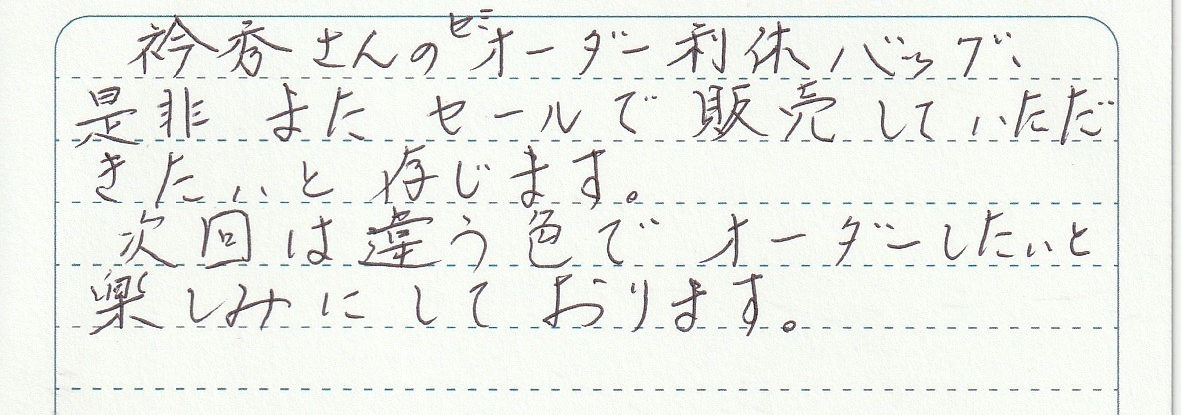 衿秀さんのセミオーダー利休バッグ、
是非 また セールで 販売していただ
きたいと 存じます。
次回は違う色で オーダーしたいと
楽しみにしております。